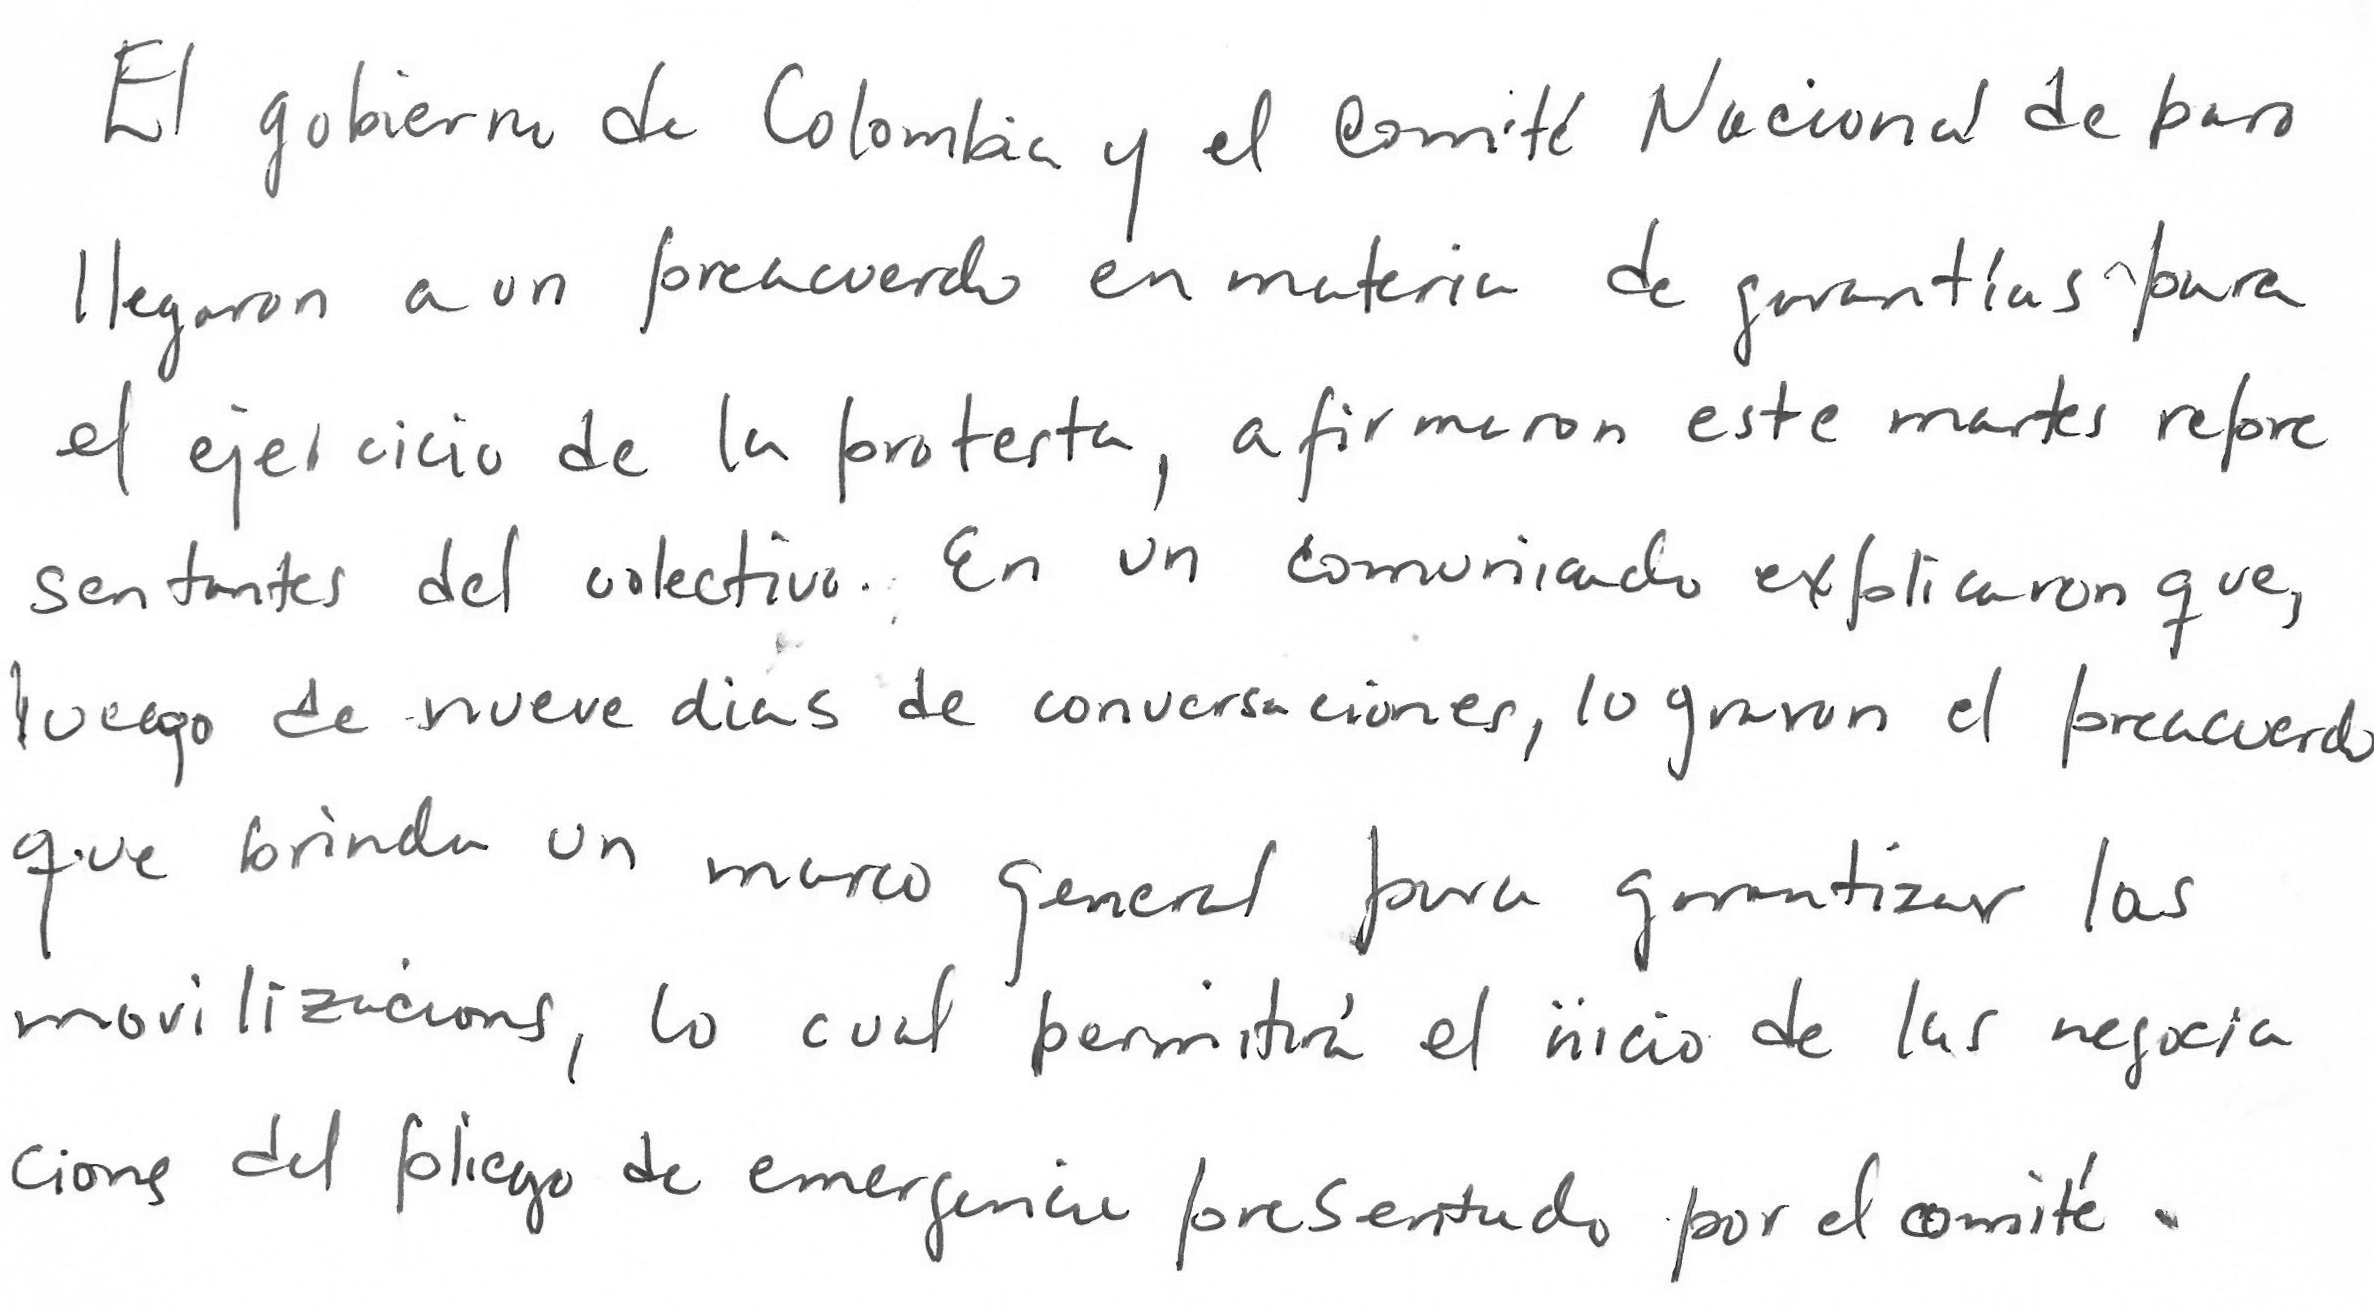 El gobierno de Colombia y el Comité Nacional de paro
llegaron a un preacuerdo en materia de garantías para
el ejercicio de la protesta, afirmaron este martes repre
sentantes del colectivo. En un comunicado explicaron que,
luego de nueve dias de conversaciones, lograron el preacuerdo
que brinda un marco general para garantizar las
movilizacions, lo cual permitirá el inicio de las negocia
cions del pliego de emergencia presentado por el comité.